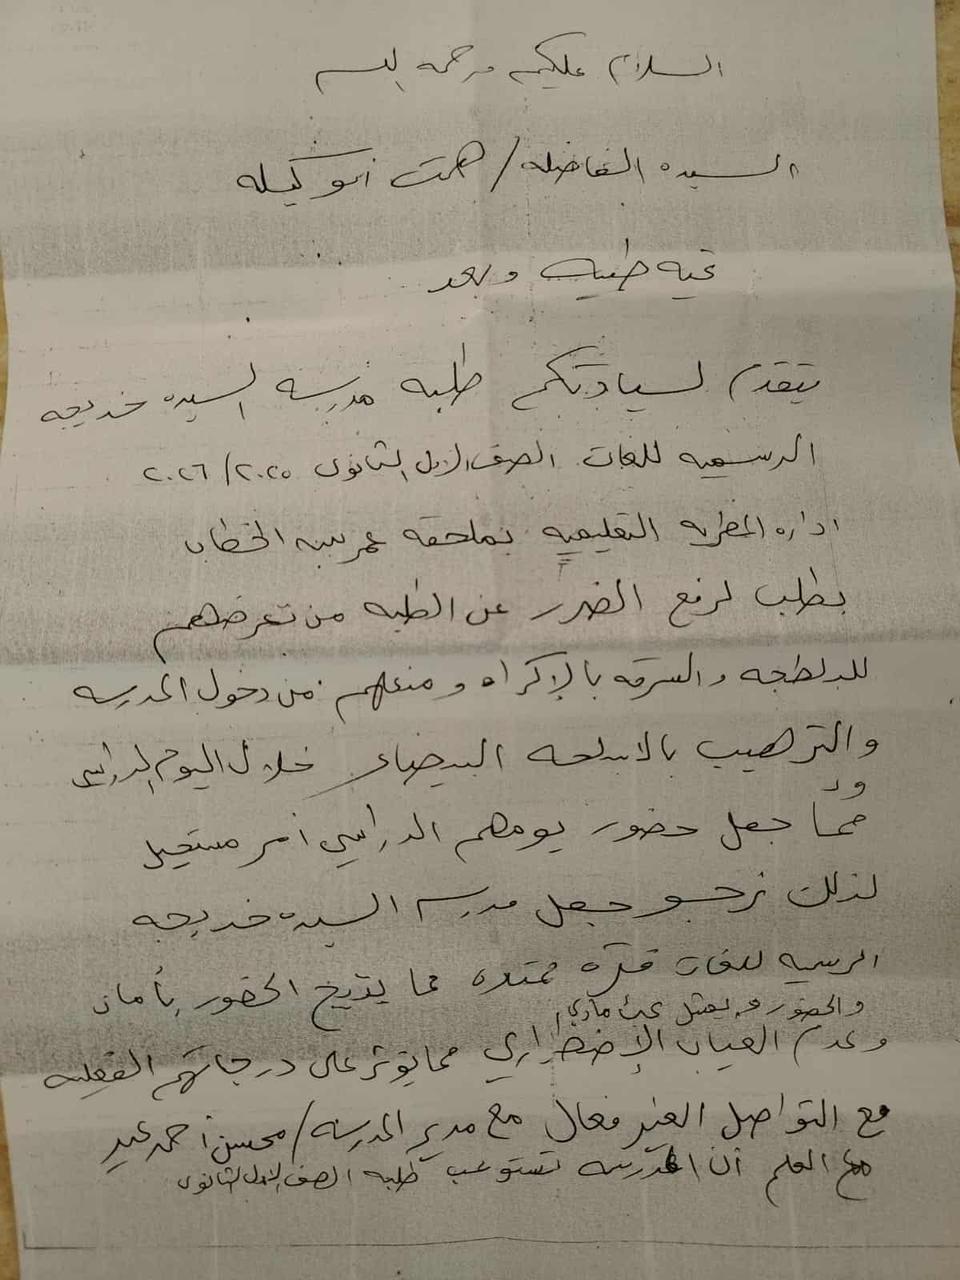 السلام عليكم ورحمه الله
السيده الفاضله / همت أبو كيله
تحيه طيبه وبعد
يتقدم لسيادتكم طلبه مدرسه السيده خديجه
الرسميه للغات الصف الاول الثانوى ٢٠٢٥/٢٠٢٦
اداره المطريه التعليميه بملحقه عمر بن الخطاب
بطلب لرفع الضرر عن الطلبه من تعرضهم
للبلطجه والسرقه بالإكراه ومنعهم من دخول المدرسه
والترهيب بالاسلحه البيضاء خلال اليوم الدراسى
مما جعل حضور يومهم الدراسي أمر مستحيل
لذلك نرجو جعل مدرسه السيده خديجه
الرسميه للغات فتره ممتده مما يتيح الحضور بأمان
والحضور يمثل عبث مادي
وعدم الغياب الإضطراري مما يؤثر على درجاتهم الفعليه
مع التواصل الغير فعال مع مدير المدرسه / محسن أحمد عيد
مع العلم أن المدرسه تستوعب طلبه الصف الاول الثانوى